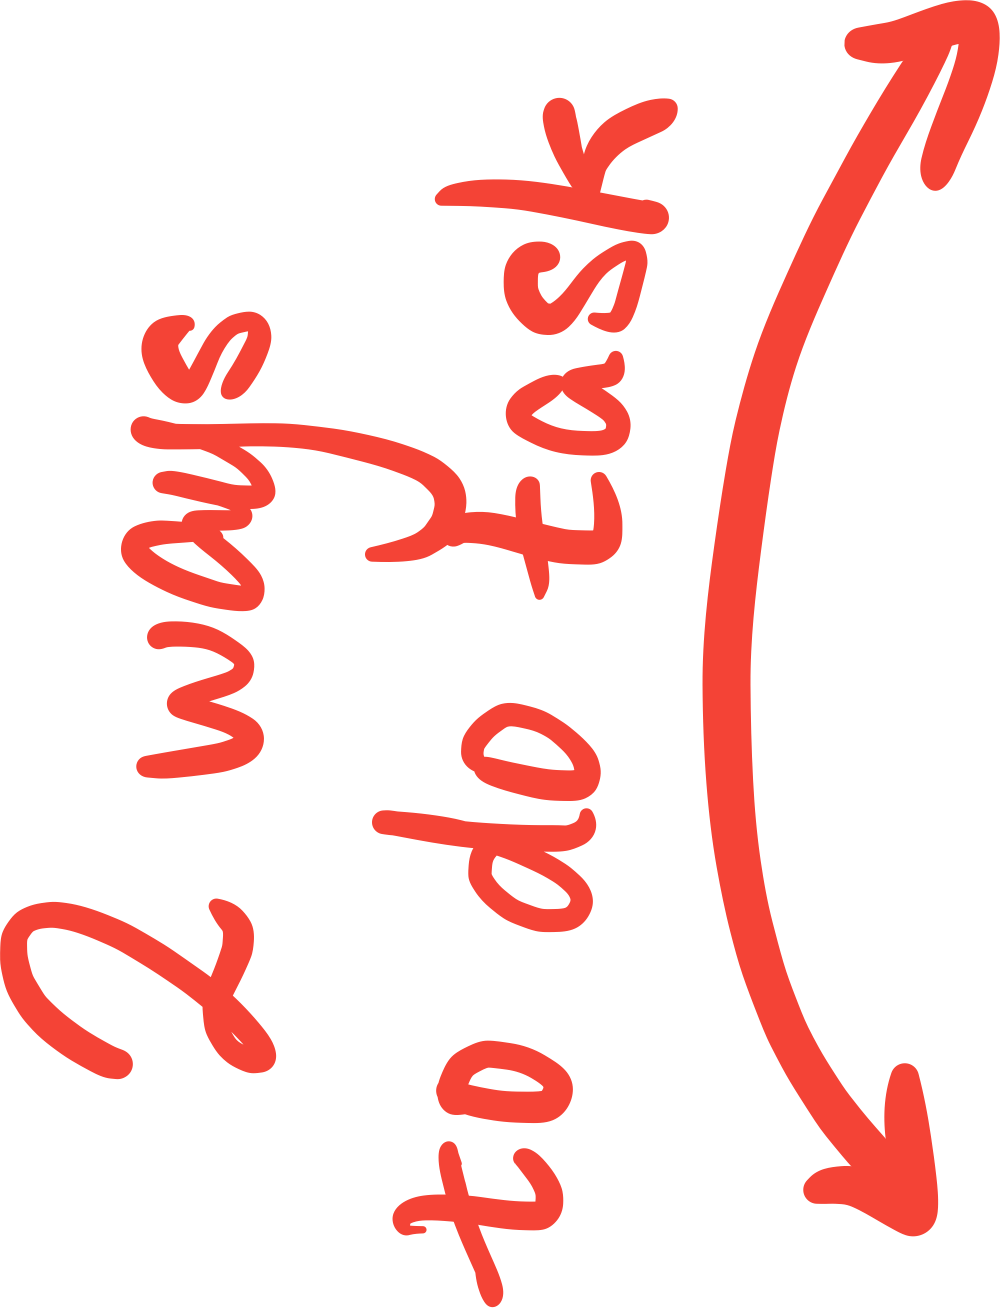 2 ways
to do task